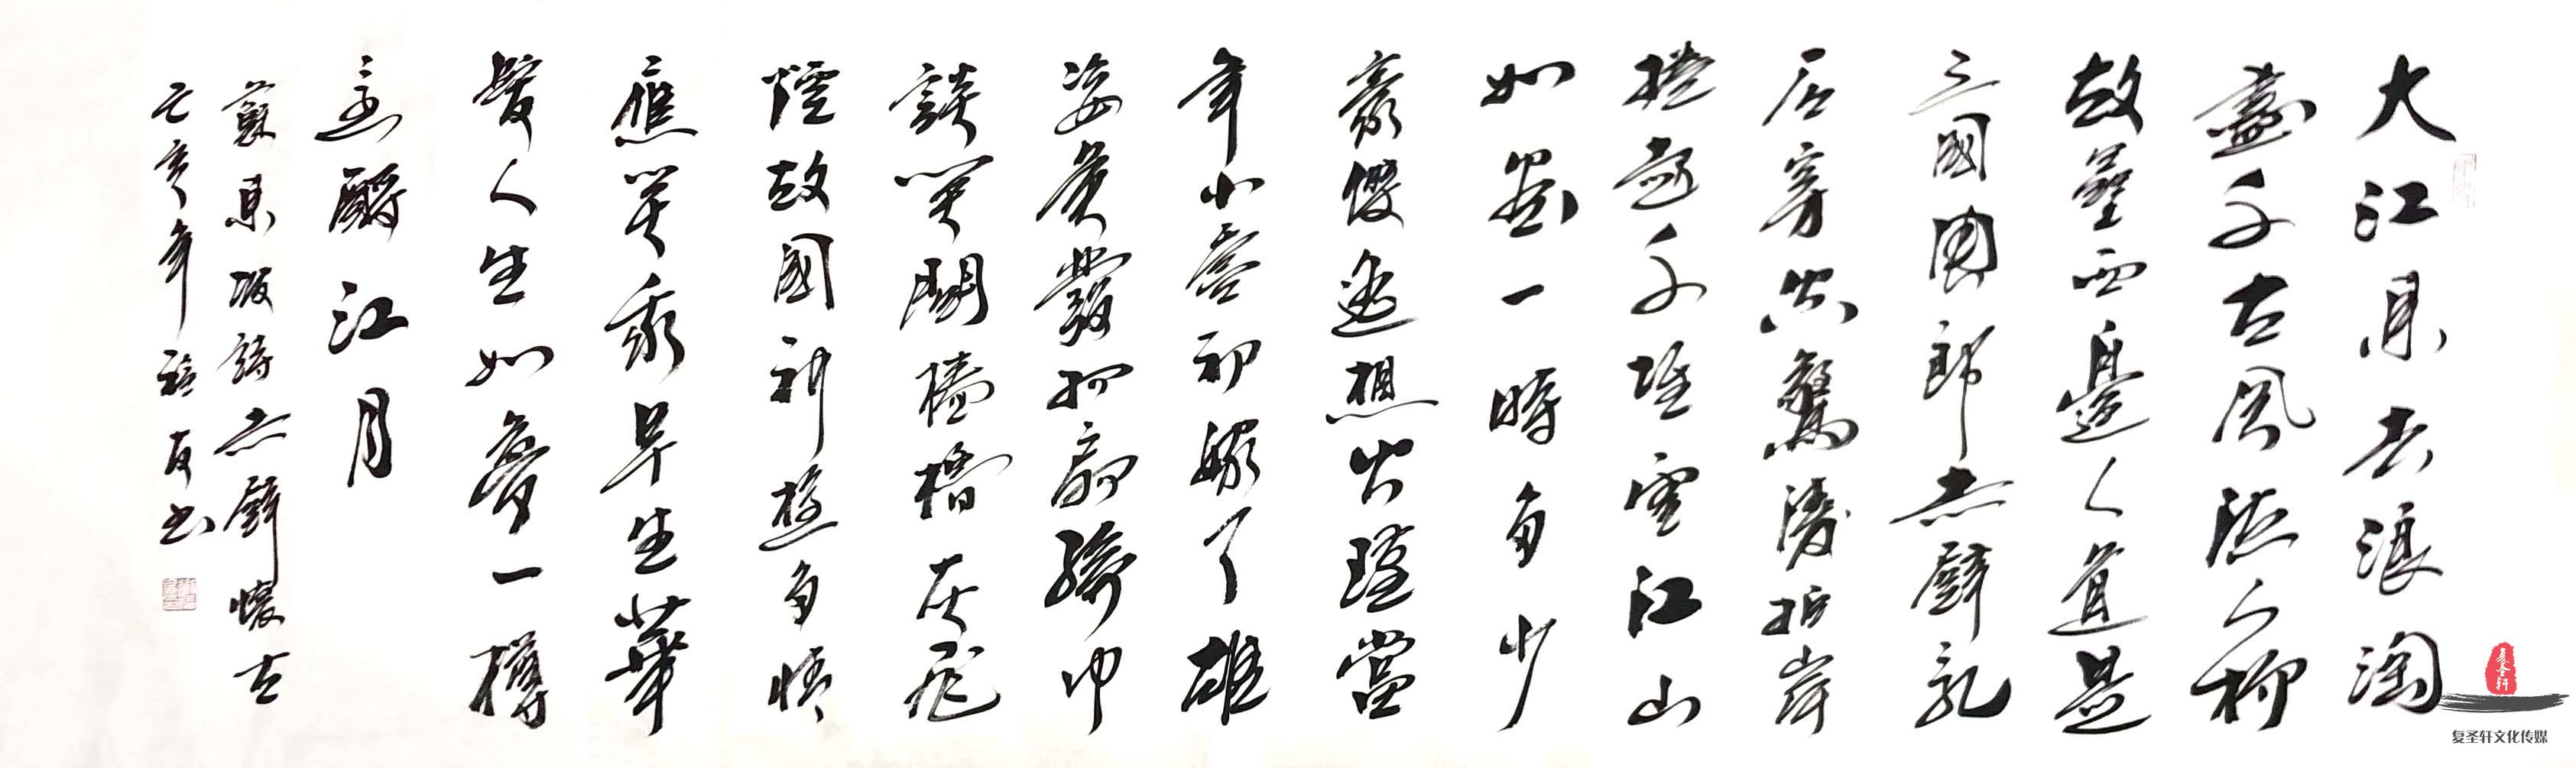 大江東去浪淘
盡千古風流人物
故壘西邊人道是
三國周郎赤壁亂
石穿空驚濤拍岸
捲起千堆雪江山
如畫一時多少
豪傑遙想公瑾當
年小喬初嫁了雄
姿英發羽扇綸巾
談笑間檣櫓灰飛
煙故國神遊多情
應笑我早生華
髮人生如夢一樽
還酹江月
蘇東坡詩赤壁懷古
己亥年友书
复圣轩
复圣轩文化传媒